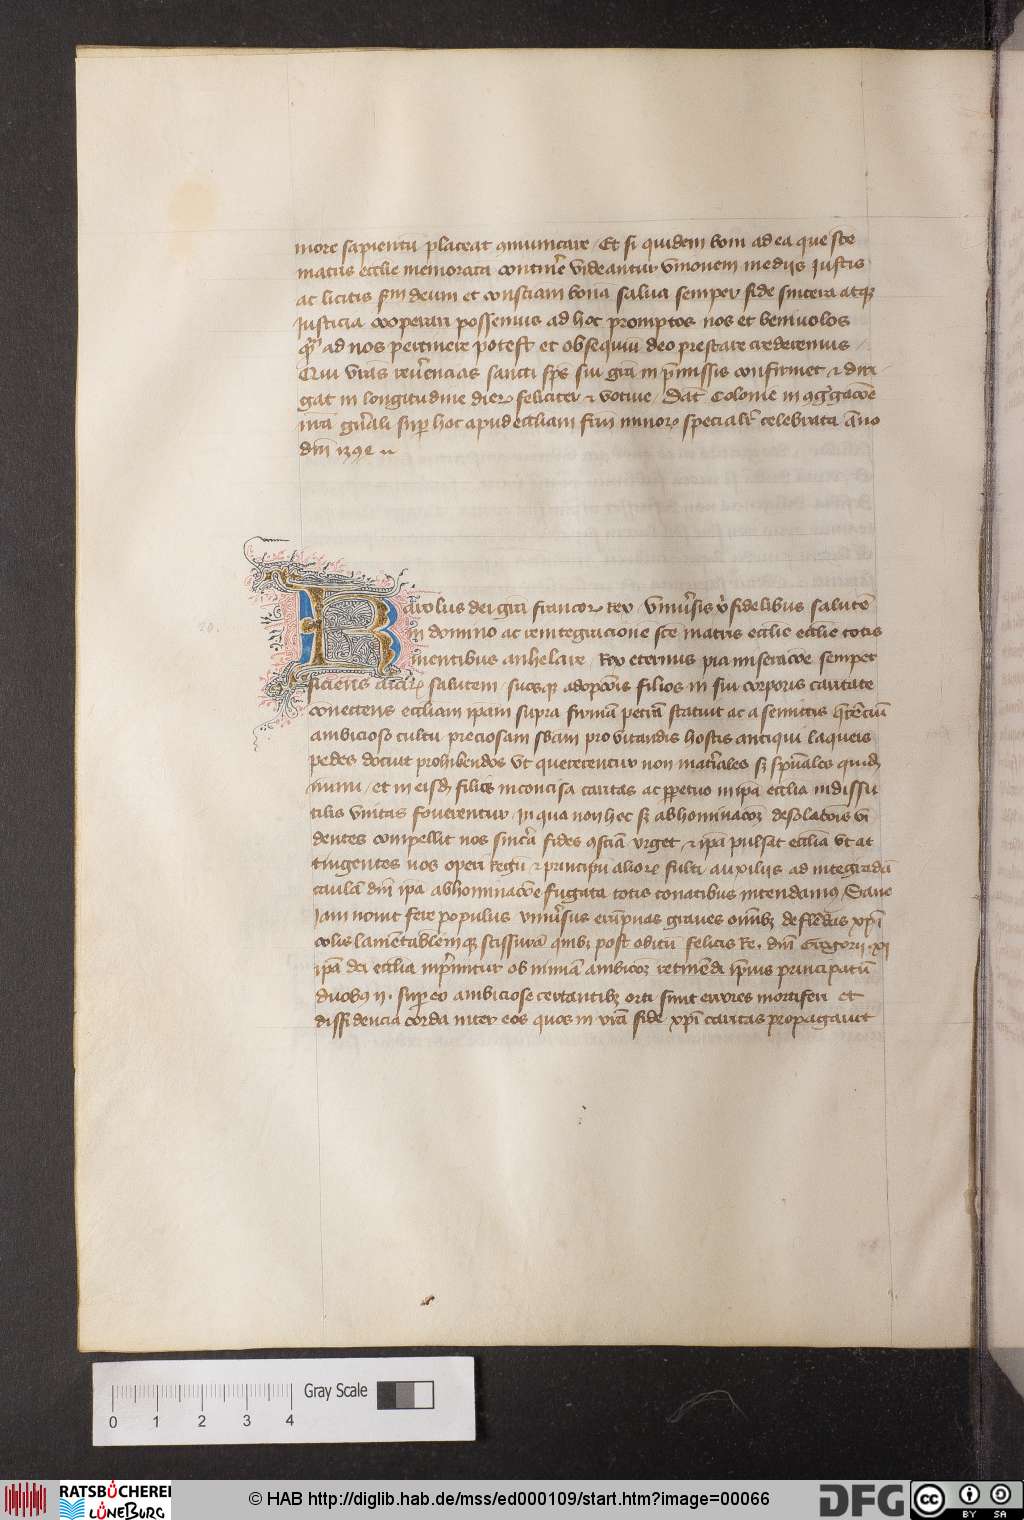 more sapientũ placeat ꝯmunicare / Et si quidem boni ad ea que sc̄e
matris eccl̄ie memorata continēt videantur vnionem medijs iustis
ac licitis scd̄m deum et consciam bona salua semper fide sincera atqꝫ
Justicia cooperari possemus ad hoc promptos nos et beniuolos
ad nos pertinere potest et obsequiũ deo prestare crederemus /
Qui vr̄as reuerencias sancti sp̄s sui gr̄a in p̄missis confirmet ⁊ diri
gat in longitudine dierꝝ feliciter ⁊ votiue / Dat̄ Colonie in ꝯg̃gacōe
nr̄a gn̄ali sup hoc apud eccliam fr̄m minorꝝ specialr̄ celebrata Anno
dn̄i
Karolus dei gr̄a francorꝝ Rex / Vniu̾sis xp̄ifidelibus salutē
in domino ac reintegracione sc̄e matris eccl̄ie eccl̄ie totis
mentibus anhelare / Rex eternus pia miseracōe semper
siciens salutem suosqꝫ adopcōis filios in sui corporis caritate
conectens eccliam ip̄am supra firmã petrã statuit ac a semitis
ambicioso cultu preciosam suam pro vitandis hostis antiqui laqueis
pedes docuit prohibendos vt quererentur non mat̾iales sꝫ sp̄uales quidē
nimi / et in eisdē filijs inconcisa caritas ac ꝑpetuo in ip̄a ecclia indissu
tilis vnitas foueretur / in qua non hec sꝫ abhominacōꝫ desolacōis vi
dentes compellit nos sincera fides ꝯsciã vrget / ⁊ ip̄a pulsat eccliã vt at
tingentes nos operi Regũ ⁊ principũ aliorꝝ fulti auxilijs ad integrādã
caulã dn̄i ip̄a abhominacōe fugata totis conatibus intendamꝰ / Sane
Jam nouit fere populus vniu̾sus erũpnas graues omībꝫ deflēdas xp̄i
colis lamētabilemqꝫ scissurã quibꝫ post obitũ felicis Re. dn̄i Gregorij .xi
ip̄a dei ecclia inp̄mitur ob nimiã ambicōꝫ retinēdi ip̄ius principatũ
duobꝰ n. sup eo ambiciose certantibꝫ orti sunt errores mortiferi et
diffidencia corda inter eos quos in vnã fide xp̄i caritas propagauit
Gray Scale
0 1 2 3 4
RATSBÜCHEREI
LÜNEBURG
© HAB http://diglib.hab.de/mss/ed000109/start.htm?image=00066
DFG
cc
BY SA